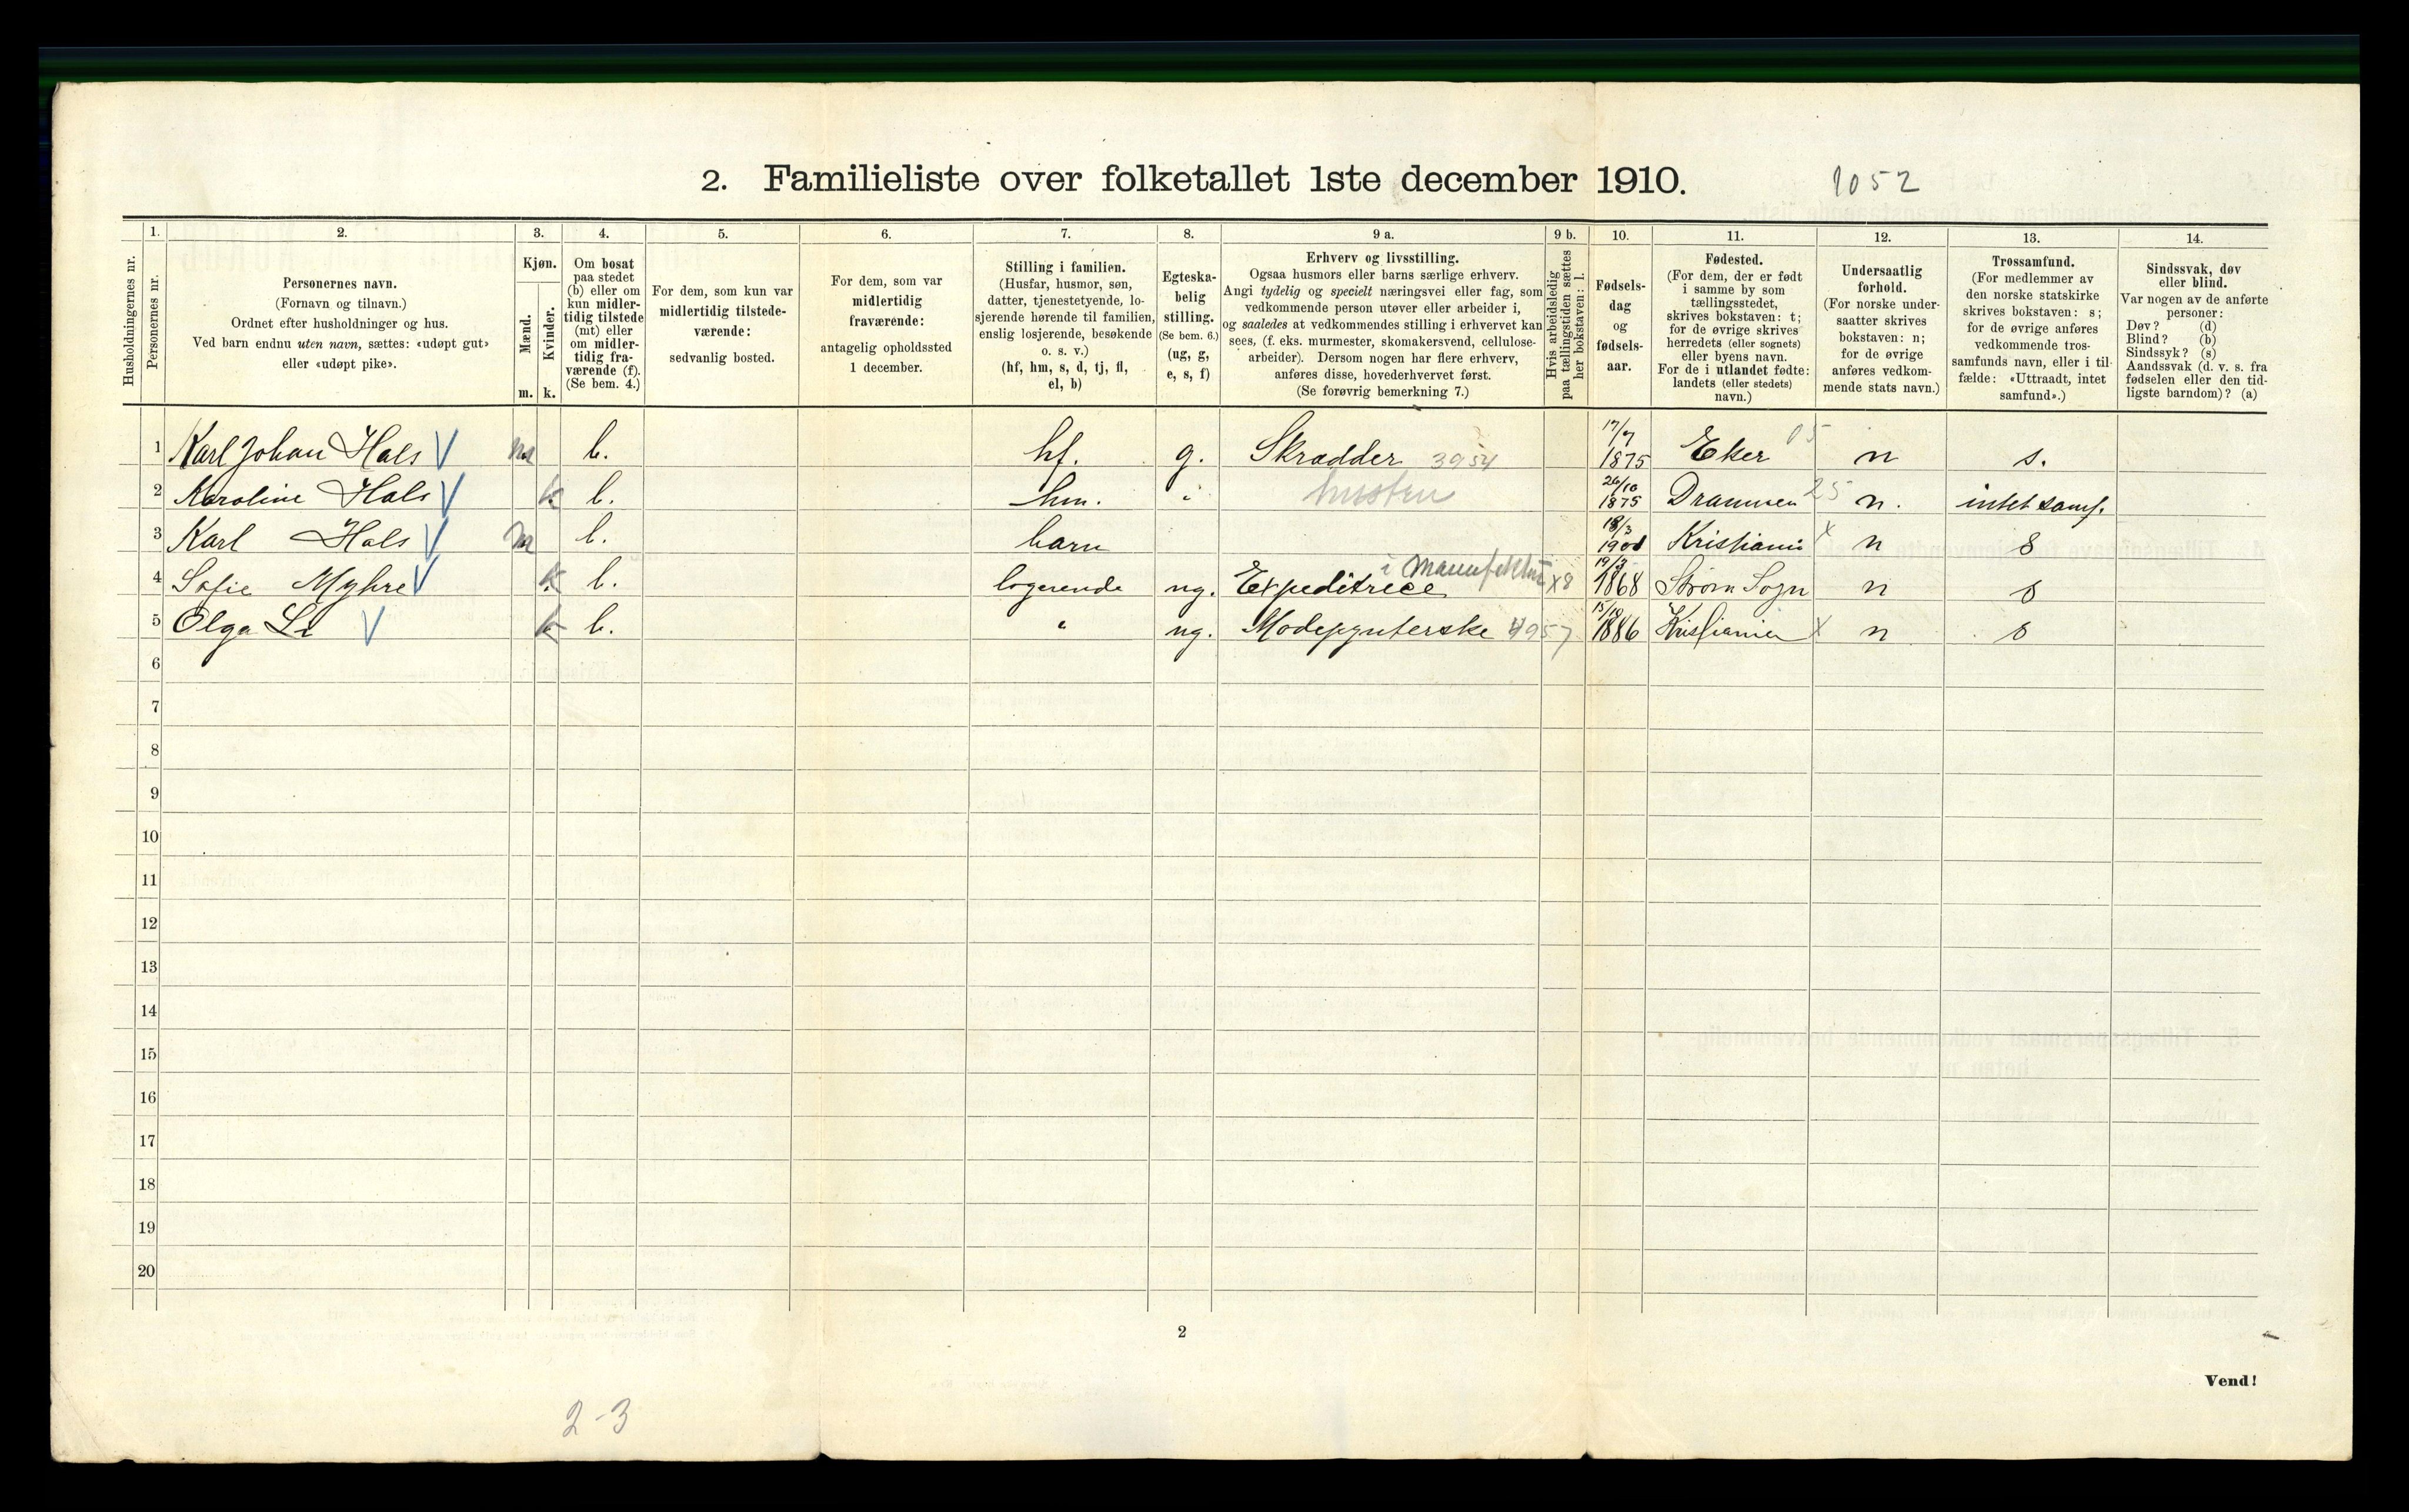 2. Familieliste over folketallet 1ste december 1910. 1052
1. 2. 3. 4. 5. 6. 7. 8. 9 a. 9 b. 10. 11. 12. 13. 14.
Husholdningernes nr.
Personernes nr.
Personernes navn.
(Fornavn og tilnavn.)
Ordnet efter husholdninger og hus.
Ved barn endnu uten navn, sættes: «udøpt gut»
eller «udøpt pike».
Kjøn.
Mænd.
Kvinder.
m. k.
Om bosat
paa stedet
(b) eller om
kun midler-
tidig tilstede
(mt) eller
om midler-
tidig fra-
værende (f).
(Se bem. 4.)
For dem, som kun var
midlertidig tilstede-
værende:
sedvanlig bosted.
For dem, som var
midlertidig
fraværende:
antagelig opholdssted
1 december.
Stilling i familien.
(Husfar, husmor, søn,
datter, tjenestetyende, lo-
sjerende hørende til familien,
enslig losjerende, besøkende
o. s. v.)
(hf, hm, s, d, tj, fl,
el, b)
Egteska-
belig
stilling.
(Se bem. 6.)
(ug, g,
e, s, f)
Erhverv og livsstilling.
Ogsaa husmors eller barns særlige erhverv.
Angi tydelig og specielt næringsvei eller fag, som
vedkommende person utøver eller arbeider i,
og saaledes at vedkommendes stilling i erhvervet kan
sees, (f. eks. murmester, skomakersvend, cellulose-
arbeider). Dersom nogen har flere erhverv,
anføres disse, hovederhvervet først.
(Se forøvrig bemerkning 7.)
Hvis arbeidsledig
paa tællingstiden sættes
her bokstaven: l.
Fødsels-
dag
og
fødsels-
aar.
Fødested.
(For dem, der er født
i samme by som
tællingsstedet,
skrives bokstaven: t;
for de øvrige skrives
herredets (eller sognets)
eller byens navn.
For de i utlandet fødte:
landets (eller stedets)
navn.)
Undersaatlig
forhold.
(For norske under-
saatter skrives
bokstaven: n;
for de øvrige
anføres vedkom-
mende stats navn.)
Trossamfund.
(For medlemmer av
den norske statskirke
skrives bokstaven: s;
for de øvrige anføres
vedkommende tros-
samfunds navn, eller i til-
fælde: «Uttraadt, intet
samfund».)
Sindssvak, døv
eller blind.
Var nogen av de anførte
personer:
Døv? (d)
Blind? (b)
Sindssyk? (s)
Aandssvak (d. v. s. fra
fødselen eller den tid-
ligste barndom)? (a)
1 Karl Johan Hals V m b. hf. g. Skrædder 3954 17/7 1875 Eker 05 n s.
2 Karoline Hals V k b. hm. " 26/10 1875 Drammen 25 n. intet samf.
3 Karl Hals V m b. barn 18/3 Kristiania x n s
4 Sofie Myhre V k b. logerende ug. Expeditrice i Manufaktur x8 19/3 1868 Strøm Sogn n s
5 Olga Li V k b. " ug. Modepynterske 4957 15/10 1886 Kristiania x n s
6
7
8
9
10
11
12
13
14
15
16
17
18
19
20
2
Vend!
2-3